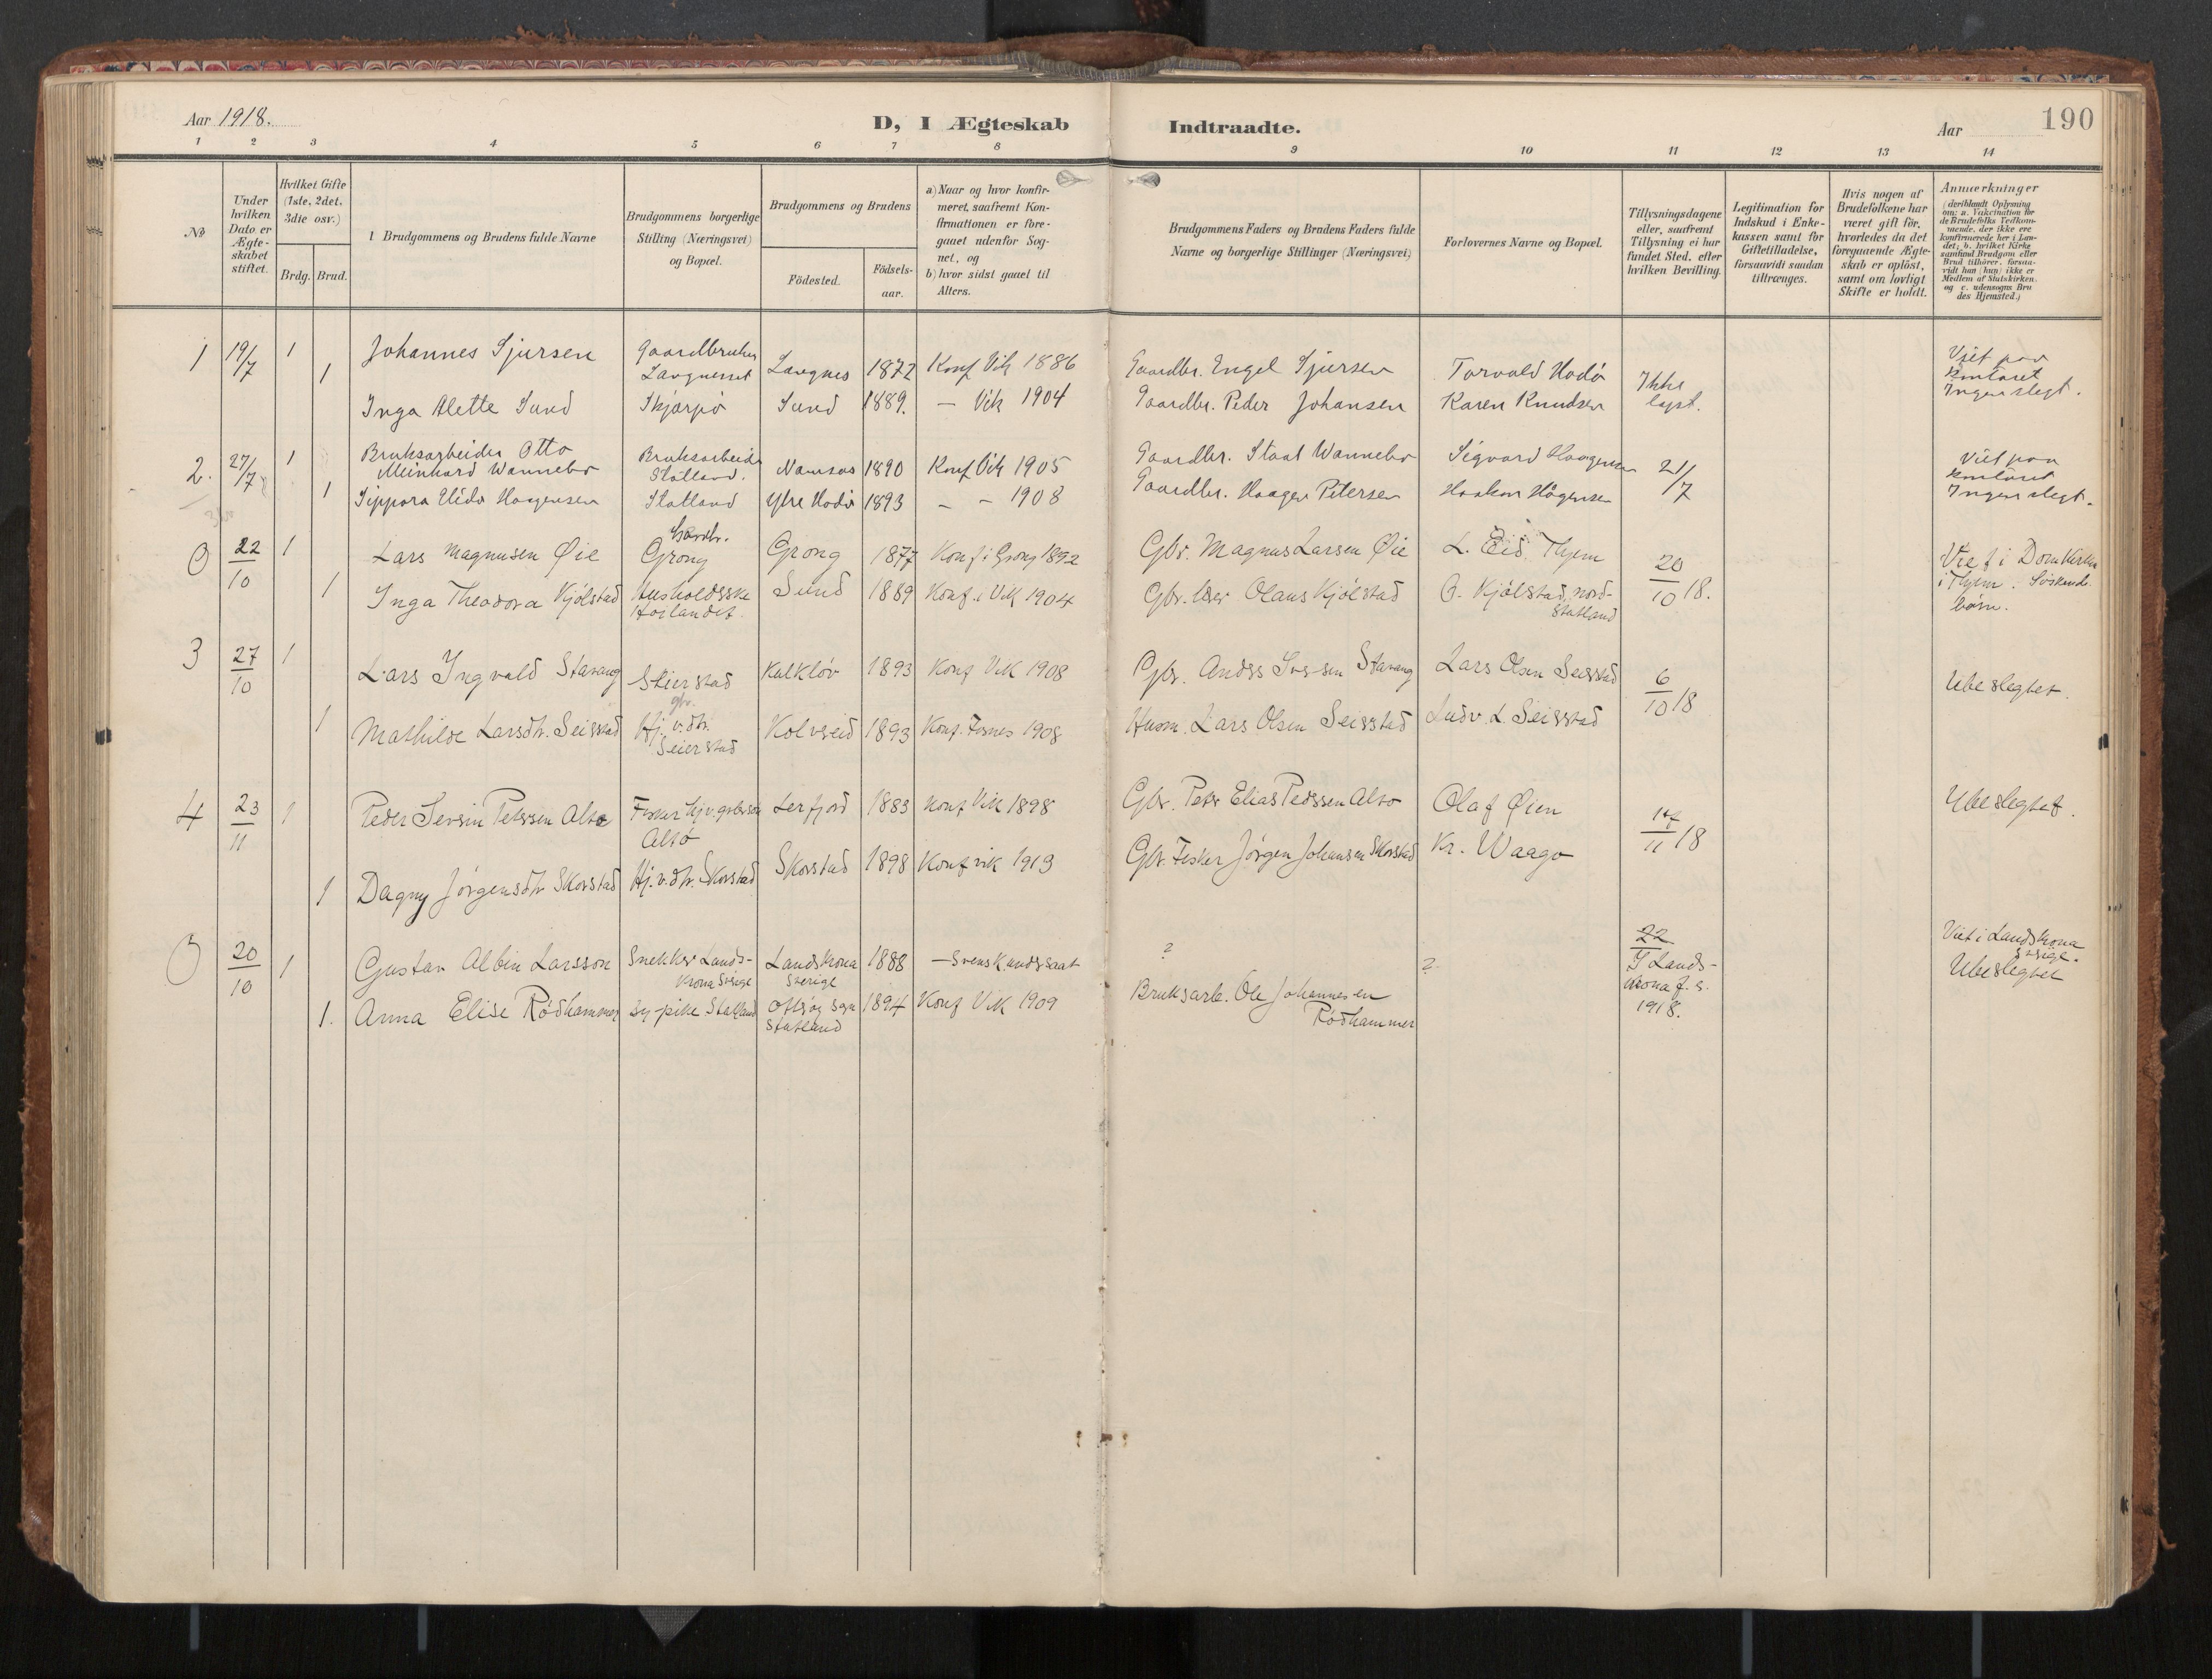 Aar 1918.
D, I Ægteskab Indtraadte.
Aar 190
1 2 3 4 5 6 7 8 9 10 11 12 13 14
No
Under hvilken Dato er Ægteskabet stiftet.
Hvilket Gifte (1ste, 2det, 3die osv.)
Brdg. Brud.
Brudgommens og Brudens fulde Navne
Brudgommens borgerlige Stilling (Næringsvei) og Bopæl.
Brudgommens og Brudens
Födested.
Födselsaar.
a) Naar og hvor konfirmeret, saafremt Konfirmationen er foregaaet udenfor Sognet, og
b) hvor sidst gaaet til Alters.
Brudgommens Faders og Brudens Faders fulde Navne og borgerlige Stillinger (Næringsvei)
Forlovernes Navne og Bopæl.
Tillysningsdagene eller, saafremt Tillysning ei har fundet Sted, efter hvilken Bevilling.
Legitimation for Indskud i Enkekassen samt for Giftetilladelse, forsaavidt saadan tiltrænges.
Hvis nogen af Brudefolkene har været gift för, hvorledes da det foregaaende Ægteskab er oplöst, samt om lovligt Skifte er holdt.
Anmærkninger (deriblandt Oplysning om: a. Vakcination for de Brudefolks Vedkommende, der ikke ere konfirmerede her i Landet; b. hvilket Kirkesamfund Brudgom eller Brud tilhører, forsaavidt han (hun) ikke er Medlem af Statskirken. og c. udensogns Brudes Hjemsted.)
1 19/7 1 Johannes Sjursen Gaardbruker Langnes 1872 Konf Vik 1886 Gaardbr. Engel Sjursen Torvald Hodö Ikke lyst. Viet paa kontoret Ingen slegt.
1 Inga Alette Sund Skjærpö Sund 1889. — Vik 1904 Gaardbr. Peder Johansen Karen Knudsen
2. 27/7 1 Bruksarbeider Otto Meinhard Wannebo Bruksarbeider Statland. Namsos 1890 Konf Vik 1905 Gaardbr. Wannebo Sigvard Haagensen 21/7 Viet paa kontoret Ingen slegt.
1 Sippora Haagensen Statland Ytre Hodö 1893 — — 1908 Gaardbr. Haagen Petersen Haakon Hågensen
0 22/10 1 Lars Magnusen Øie Gardbr. Grong Grong 1877 Konf i Grong 1892 Gbr. Magnus Larsen Øie L. Eid. Thjem 20/10 18. Viet i Domkirken i Thjem. Söskendebörn.
1 Inga Theodora Kjölstad Husholdsske Höilandet. Sund 1889 Konf. i Vik 1904 Gbr. Olaus Kjölstad O. Kjölstad, nord-Statland
3 27/10 1 Lars Ingvald Stavang Seierstad gbr. Kalklöv 1893 Konf Vik 1908 Gbr. Stavang Lars Olsen Seierstad 6/10 18 Ubeslegtet.
1 Mathilde Larsdtr. Seierstad Hj. v. dtr. Seierstad Kolvreid 1893 Konf. Fosnes 1908 Husm. Lars Olsen Seierstad Ludv. L. Seierstad
4 23/11 1 Peder Severin Petersen Altö Fisker Altö Lerfjord 1883 Konf Vik 1898 Gbr. Peter Elias Pedersen Altö Olaf Øien 17/11 18 Ubeslegtet.
1 Dagny Jörgensdtr Skorstad Hj. v. dtr. Skorstad Skorstad 1898 Konf vik 1913 Gbr. Fisker Jörgen Johansen Skorstad Kr. Waagö
0 20/10 1 Gustav Albin Larsson Snekker Landskrona Sverige Landskrona Sverige 1888 — Svensk undersaat ? ? 22 I Landskrona f. s. 1918. Viet i Landskrona Sverige. Ubeslegtet
1. Anna Elise Rödhammer Sypike Statland Otteröy sogn Statland 1894 Konf Vik 1909 Bruksarb. Ole Johannesen Rödhammer